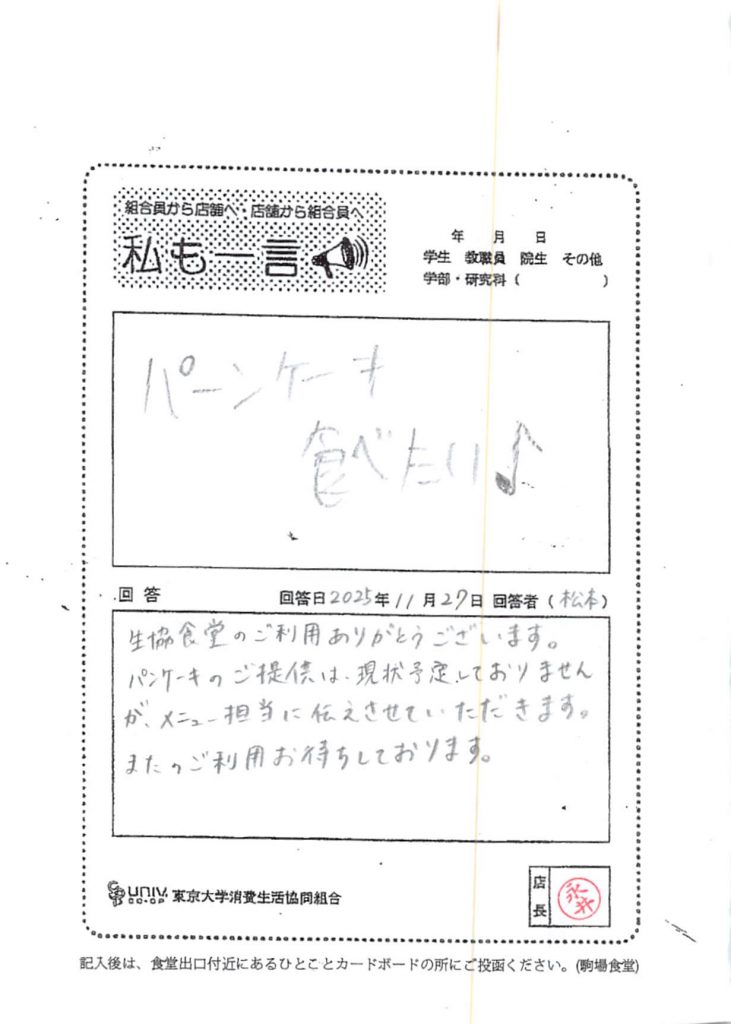 組合員から店舗へ・店舗から組合員へ
私も一言
年 月 日
学生 教職員 院生 その他
学部・研究科 ( )
パーンケーキ
食べたい♪
回答 回答日2025年11月27日 回答者 (松本)
生協食堂のご利用ありがとうございます。
パンケーキのご提供は、現状予定しておりません
が、メニュー担当に伝えさせていただきます。
またのご利用お待ちしております。
UNIV. CO-OP 東京大学消費生活協同組合
店長 永井
記入後は、食堂出口付近にあるひとことカードボードの所にご投函ください。(駒場食堂)